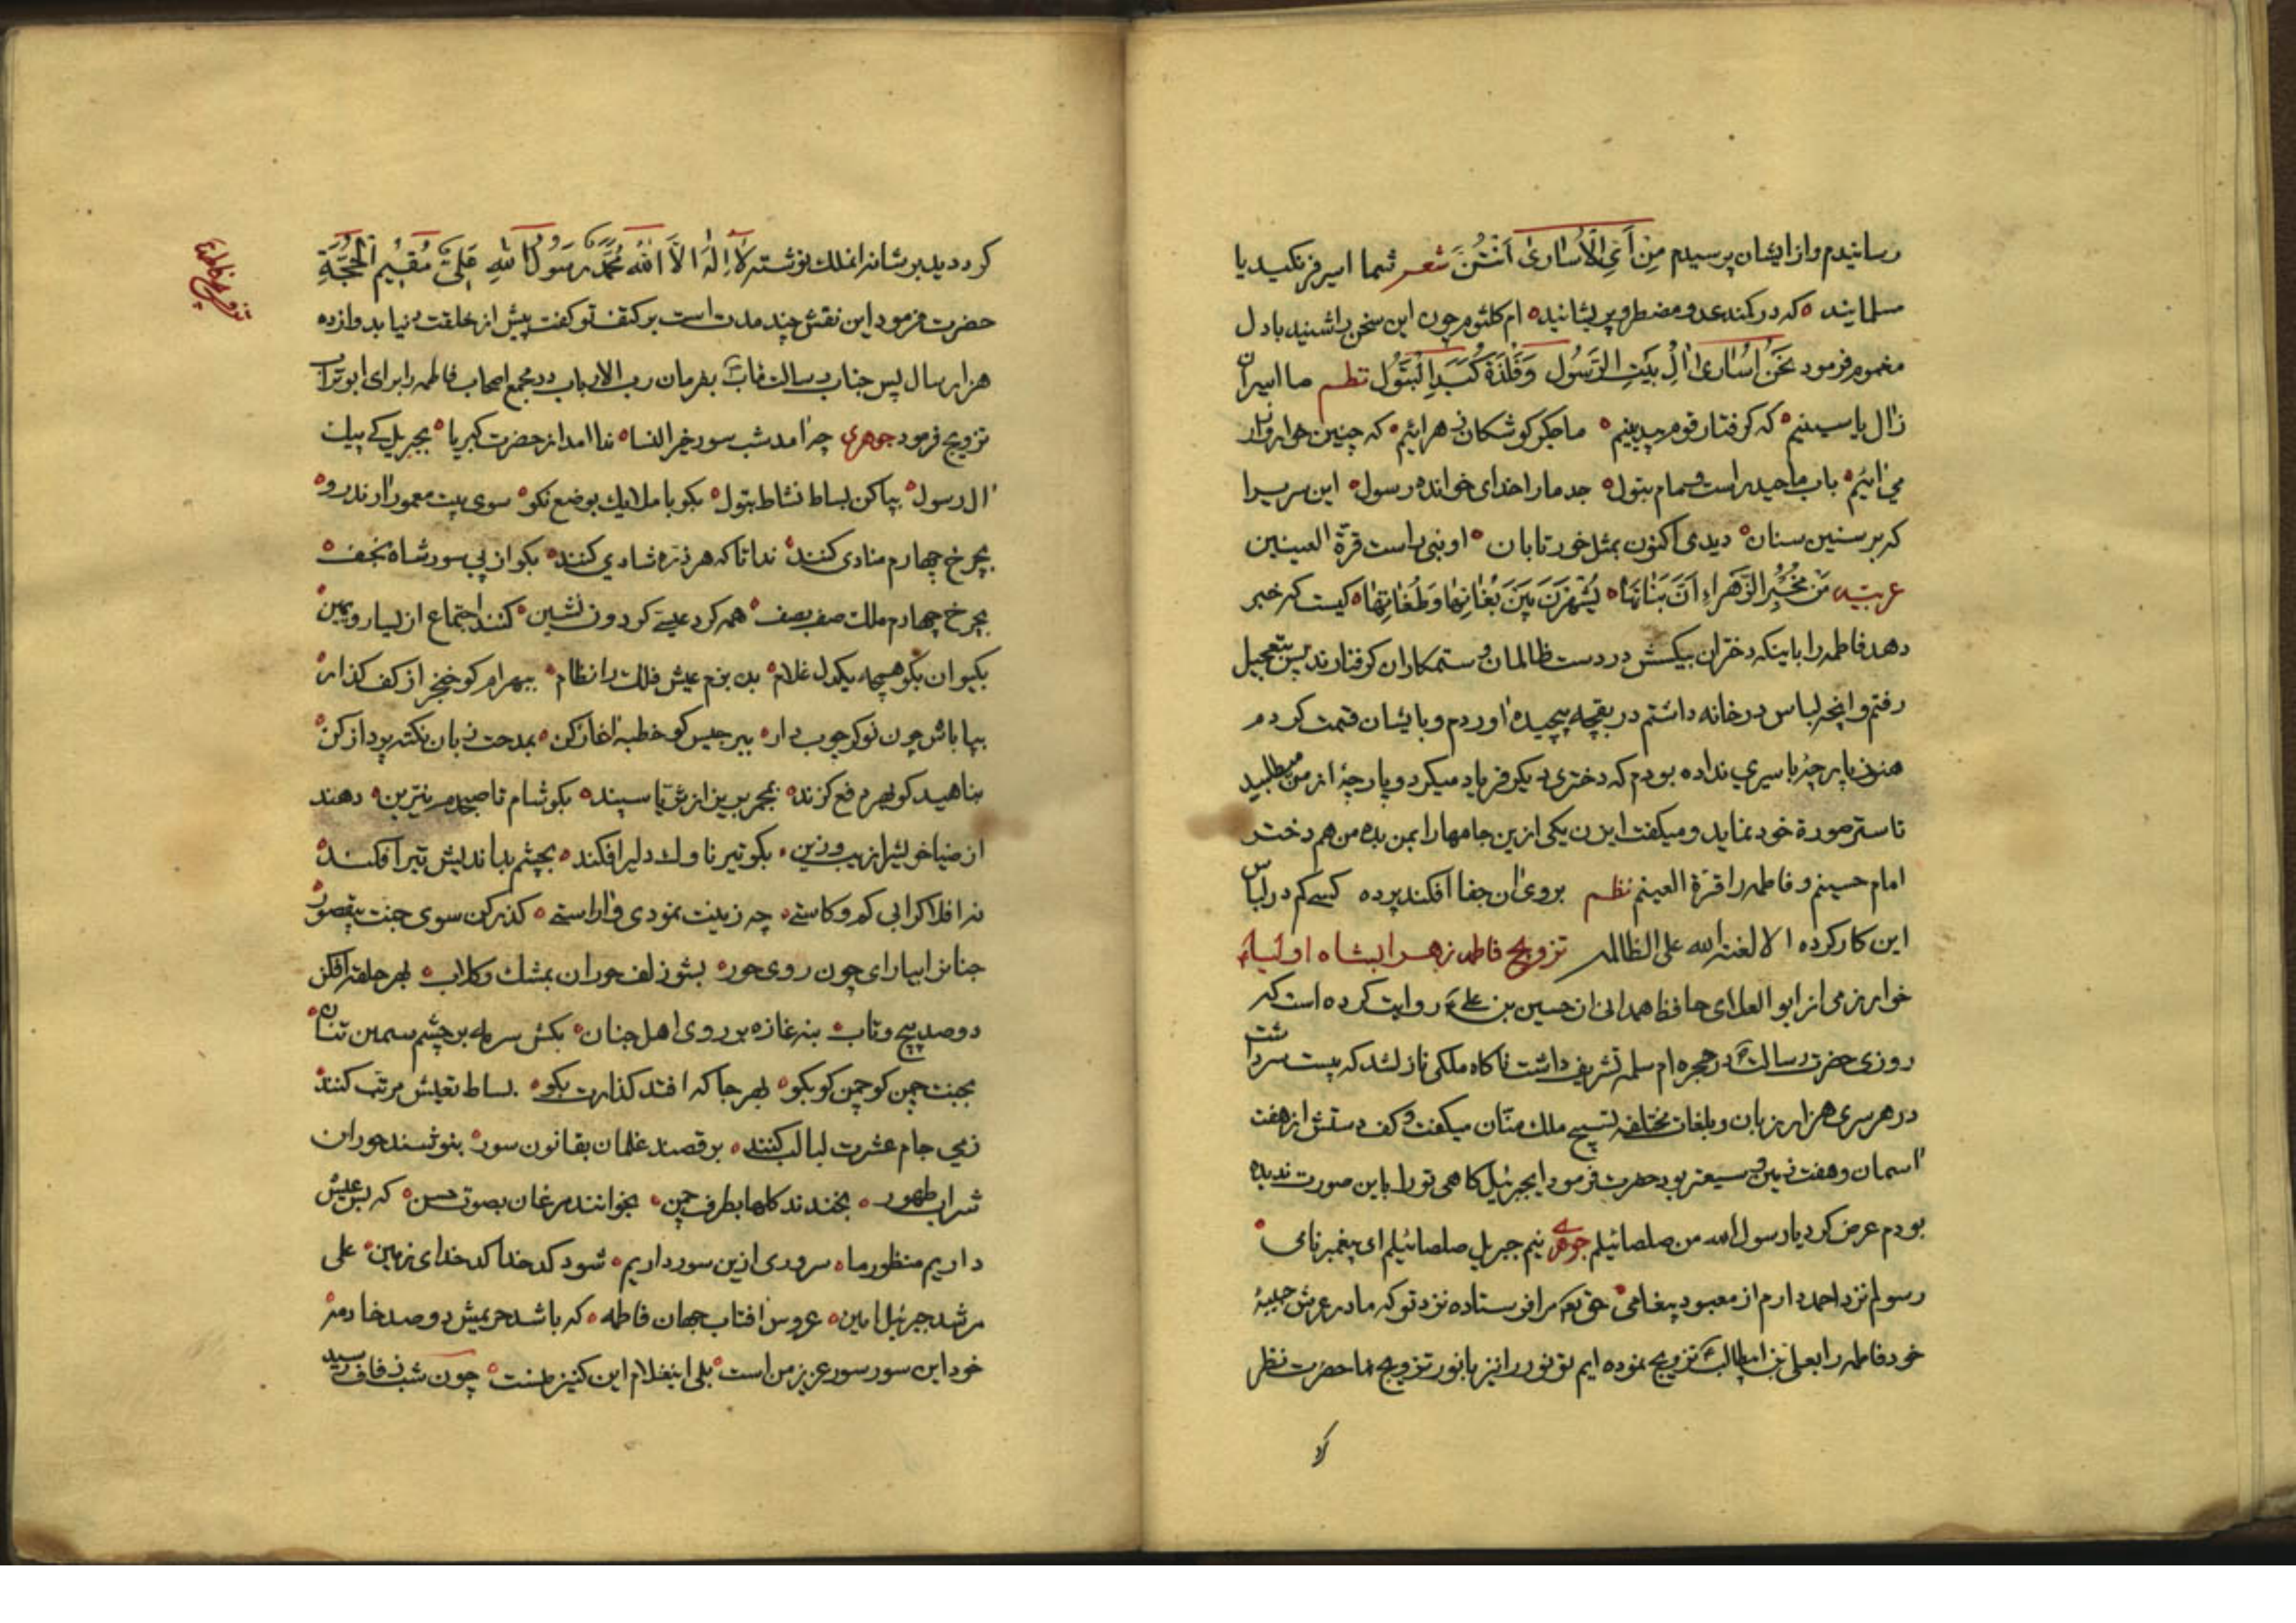 رسانیدم و از ایشان پرسیدم مِنْ اَیِّ الْاُسَارٰی اَنْتُنَّ شعر شما اسیر فرنکید یا
مسلمانید ه که در کمند عدو مضطر و پریشانید ه ام کلثوم چون این سخن را شنید با دل
مغموم فرمود نَحْنُ اُسَارٰی اٰلِ بَیْتِ الرَّسُولِ وَ فَلْذَةِ کَبَدِ الْبَتُولِ نظم ما اسیران
زال یاسینیم ه که کرفتار قوم بیدینیم ه ما جکر کوشکان زهرائیم ه که چنین خوار و زار
می آئیم ه باب ما حیدر است و مام بتول ه جد ما را خدای خوانده رسول ه این سریرا
که بر سنین سنان ه دیدی اکنون بمثل خور تابان ه او نبی راست قرة العینین
عربیه مَنْ مُخْبِرُ الزَّهْرَاءِ اَنَّ بَنَاتَهَا ه یُشْهَرْنَ بَیْنَ بُغَاتِهَا وَ طُغَاتِهَا ه کیست که خبر
دهد فاطمه را باینکه دختران بیکسش در دست ظالمان و ستمکاران کرفتارند پس بتعجیل
رفتم و انچه لباس در خانه داشتم در بقچه پیچیده اوردم و بایشان قسمت کردم
هنوز پارچهٔ باسیری نداده بودم که دختری دیکر فریاد میکرد و پارچهٔ از من میطلبید
تا ستر صورة خود نماید و میکفت ایزن یکی ازین جامها را بمن بده من هم دختر
امام حسینم و فاطمه را قرة العینم نظم بروی ان جفا افکند پرده کسی کم در لباس
این کار کرده الا لعنة الله علی الظالم تزویج فاطمه زهرا بشاه اولیاء
خوارزمی از ابو العلای حافظ همدانی از حسین بن علی ع روایت کرده است که
روزی حضرت رسالت ص در حجره ام سلمه تشریف داشت ناکاه ملکی نازلشد که بیست سر داشت
در هر سری هزار زبان و بلغات مختلفه تسبیح ملک منّان میکفت و کف دستش از هفت
اسمان و هفت زمین وسیعتر بود حضرت فرمود ایجبرئیل کاهی تو را باین صورت ندیده
بودم عرض کرد یا رسول الله من صلصائیلم جوهری نیم جبریل صلصائیلم ای پیغمبر نامی ه
رسولم نزد احمد دارم از معبود پیغامی ه حق تعه مرا فرستاده نزد تو که ما در عرش حبیبهٔ
خود فاطمه را بعلی بن ابیطالب ع تزویج نموده ایم تو نور را نیز با نور تزویج نما حضرت نظر
کرد
کرد دید بر شانه انملک نوشته لَا اِلٰهَ اِلَّا اللّٰهُ مُحَمَّدٌ رَسُولُ اللّٰهِ عَلِیٌّ مُقِیمُ الْحُجَّةِ
حضرت فرمود این نقش چند مدت است بر کتف تو کفت پیش از خلقت دنیا بدوازده
هزار سال پس جناب رسالت ماب ص بفرمان رب الارباب در مجمع اصحاب فاطمه را برای ابوتراب
تزویج فرمود جوهری چه آمد شب سور خیر النسا ه ندا امد از حضرت کبریا ه بجبریل کے پیک
ال رسول ه بپا کن بساط نشاط بتول ه بکو با ملایک بوضع نکو ه سوی بیت معمور آرند رو ه
بچرخ چهارم منادی کنند ه ندا تا که هر ذره شادی کنند ه بکو از پی سور شاه نجف ه
بچرخ چهارم ملک صف بصف ه همه کرد عیسی کردون نشین ه کنند اجتماع از یسار و یمین ه
بکیوان بکو همچه یکدل غلام ه بده بزم عیش فلک را نظام ه ببهرام کو خنجر از کف کذار ه
بپا باش چون نوکر چوب دار ه ببرجیس کو خطبه اغاز کن ه بمدحت زبان نکته پرداز کن ه
بناهید کو بهر دفع کزند ه بمجمر بریز از ثریا سپند ه بکو شام تا صبحدم نیرین ه دهند
از ضیا خویشرا زیب و زین ه بکو تیر ناوک دلیر افکند ه بچشم بد اندیش تیر افکند ه
نه افلاک را بی کم و کاستی ه چه زینت نمودی و اراستی ه کذر کن سوی جنت بیقصور ه
جنانرا بیارای چون روی حور ه بشو زلف حوران بمشک و کلاب ه بهر حلقه افکن
دو صد پیچ و تاب ه بنه غازه بر روی اهل جنان ه بکش سرمه بر چشم سیمین تنان ه
بجنت چمن کو چمن کو بکو ه بهر جا که افتد کذارت بکو ه بساط تعیش مرتب کنند ه
زمی جام عشرت لبالب کنند ه برقصند غلمان بقانون سور ه بنوشند حوران
شراب طهور ه بخندند کلها بطرف چمن ه بخوانند مرغان بصوت حسن ه که بس عیش
داریم منظور ما ه سروری ازین سور داریم ه شود کدخدا کدخدای زمین ه علی
مرشد جبرئیل امین ه عروس آفتاب جهان فاطمه ه که باشد حریمش دو صد خادمه ه
خود این سور سور عزیز من است ه بلی اینغلام این کنیز منست ه چون شب زفاف رسید